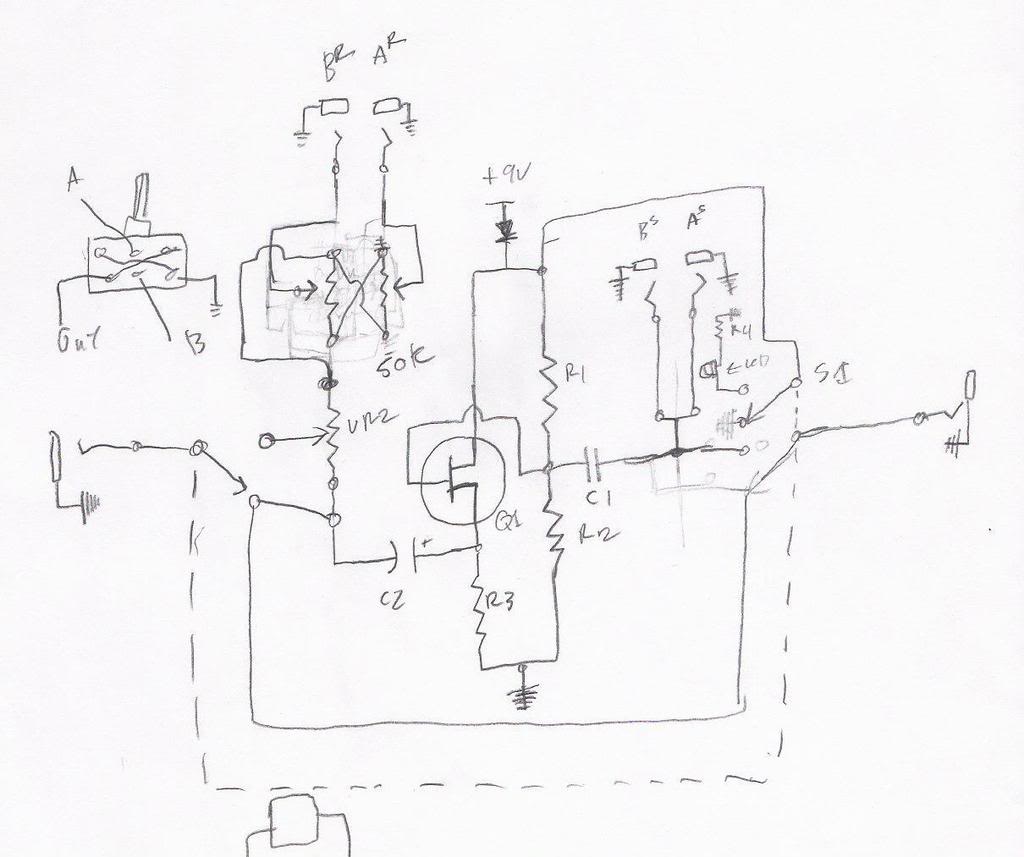 B^R A^R
A
+9V
B^S A^S
Out
B
50K
R4
LED
R1
S1
VR2
Q1
C1
R2
C2
+
R3